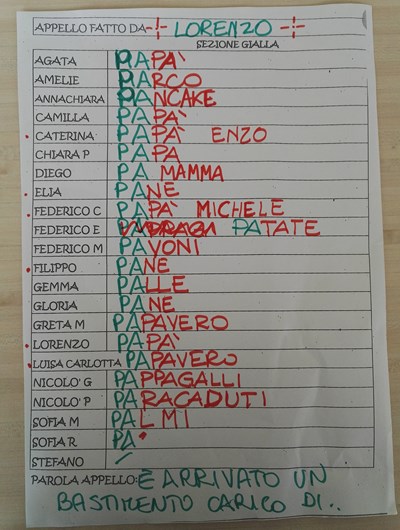 APPELLO FATTO DA -!- LORENZO -!-
SEZIONE GIALLA
AGATA PAPÀ
AMELIE PARCO
ANNACHIARA PANCAKE
CAMILLA PAPÀ
CATERINA PAPÀ ENZO
CHIARA P PAPA
DIEGO PA MAMMA
ELIA PANE
FEDERICO C PAPÀ MICHELE
FEDERICO E PATATE
FEDERICO M PAVONI
FILIPPO PANE
GEMMA PALLE
GLORIA PANE
GRETA M PAPAVERO
LORENZO PAPÀ
LUISA CARLOTTA PAPAVERO
NICOLO' G PAPPAGALLI
NICOLO' P PARACADUTI
SOFIA M PALMI
SOFIA R. PA
STEFANO
PAROLA APPELLO: È ARRIVATO UN
BASTIMENTO CARICO DI..